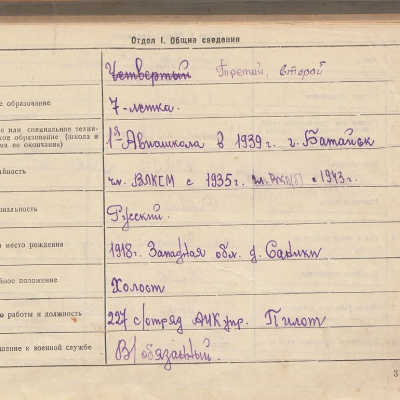 Отдел I. Общие сведения
Четвертый Третий, второй
е образование
7-летка.
е или специальное техни-
кое образование (школа и
мя ее окончания)
1я Авиашкола в 1939 г. г. Батайск
йность
чл. ВЛКСМ с 1935 г. чл. ВКП/б/ с 1943 г.
ональность
Русский.
и место рождения
1918 г. Западная обл. д. Саники
йное положение
Холост
о работы и должность
227 с/отряд АЧК упр. Пилот
шение к военной службе
В/обязанный.
3